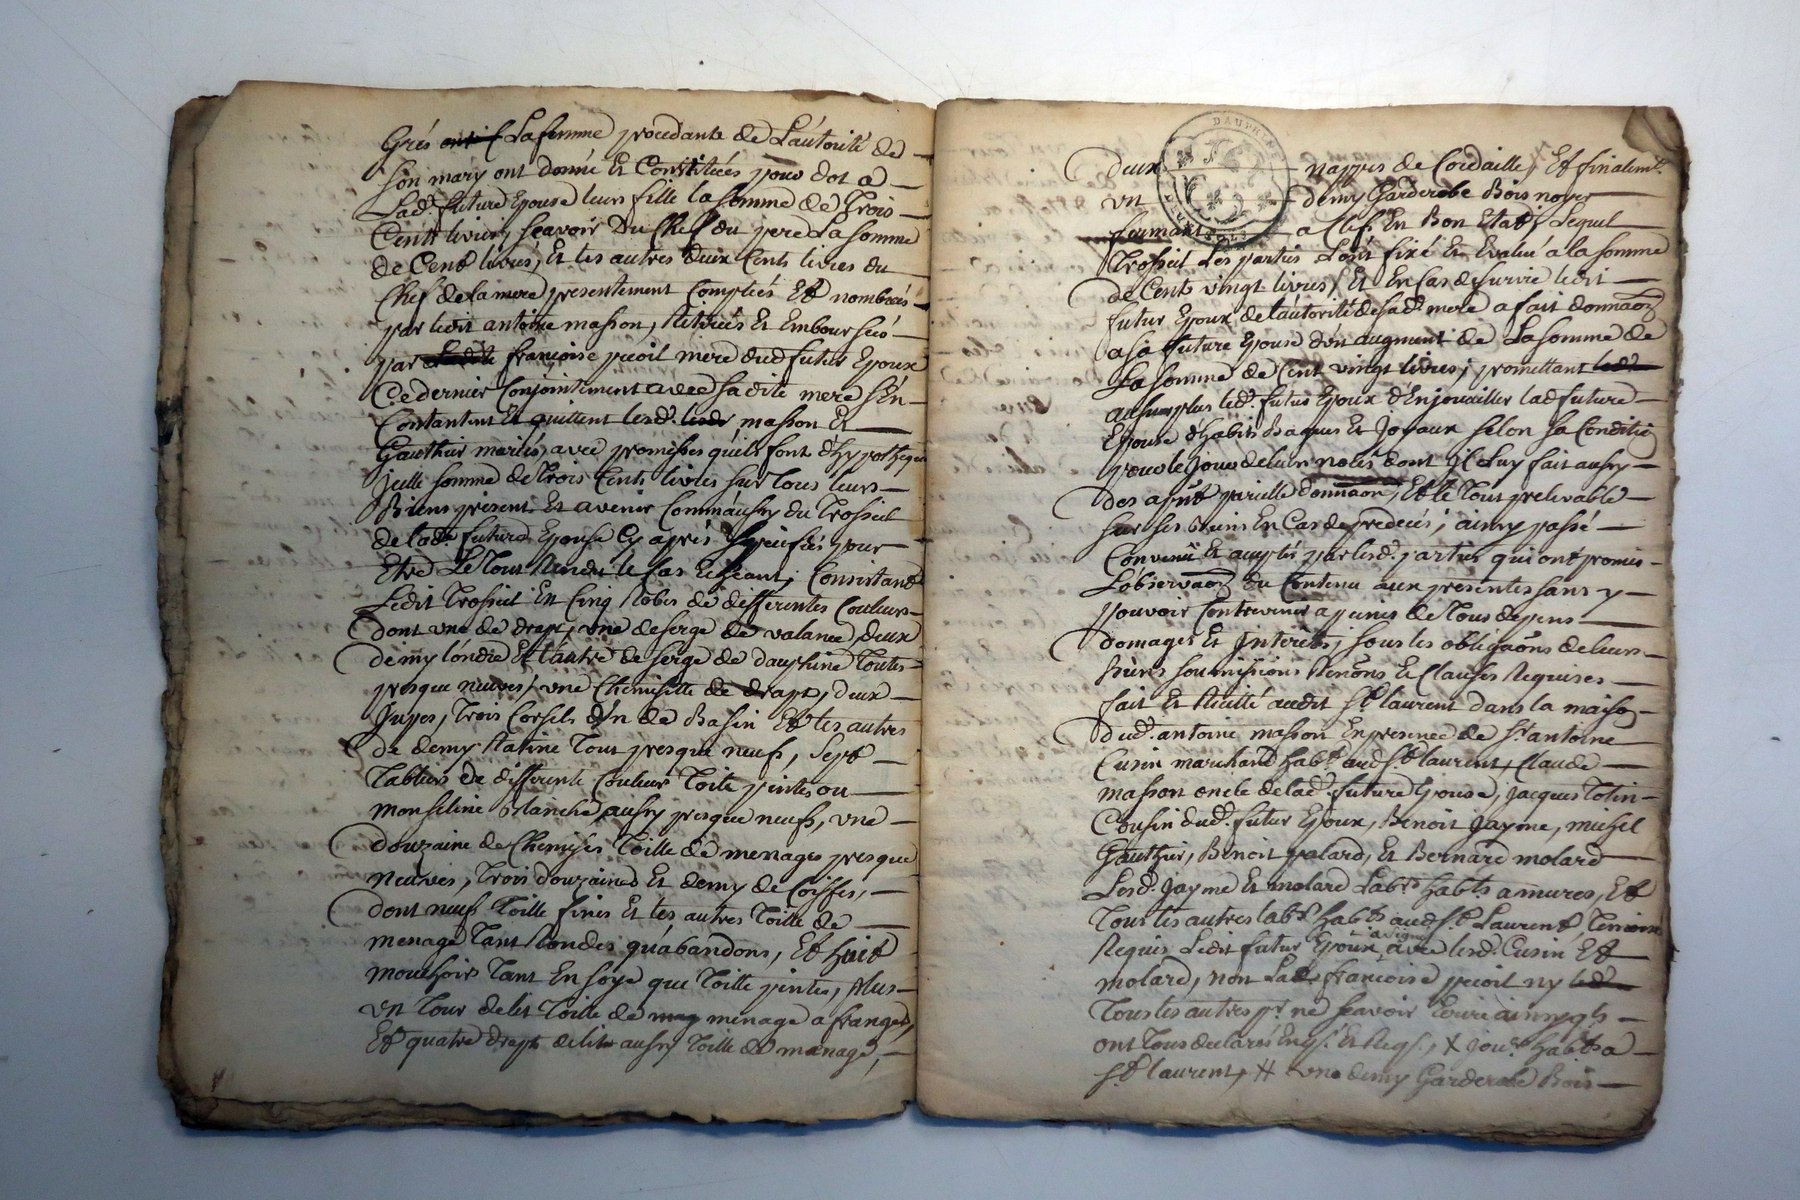 Grés La femme procedante de L'autorité de
son mary ont donné Et Constituées pour dot a
Lad. future Epouse leur fille la somme de Trois
Cents livres, scavoir Du Chef du pere La somme
de Cent livres, Et les autres deux Cents livres du
Chef de la mere presentement Comptées Et nombrées
par ledit antoine masson, Retirées Et Emboursées
par françoise pucoil mere dud futur Epoux
Ce dernier Conjointement avec sa dite mere s'En
Contantent Et quittent lesd. masson Et
Gauthier mariés, avec promesses qu'ils font d'hypothequer
jcelle somme de Trois Cents livres sur Tous leurs
Biens present Et avenir Comm'aussy du Trossel
de lad. future Epouse Cy après speciffiés pour
Etre Le Tout Rendu le Cas Echeant, Consistant
Ledit Trossel En Cinq Robes de differentes Couleurs
dont une de drapt, une de serge de valance, deux
demy londre Et l'autre de serge de dauphiné Toutes
presque neuves, une Chemisette de drapt, deux
Jupes, Trois Corsets d'un de Basin Et les autres
de demy Ratine Tous presque neufs, sept
Tabliers de differente Couleur Toile peinte ou
monseline blanche, aussy presque neufs, une
douzaine de Chemises Toille de menages presque
neuves, Trois douzaines Et demy de Coiffes,
dont neufs Toille fines Et les autres Toille de
menage Tant Rondes qu'abandons, Et huit
mouchoirs Tant En soye que Toille peintes, plus
un Tour de lit Toille de menage a franges,
Et quatre drapts de lit aussy Toille de menage,
DAUPHINE
deux nappes de Cordaille, Et finalemt.
un demy Garderobe Bois noyer
fermant a Clef En Bon Etat, Lequel
Trossel Les parties L'ont fixé Et Evalué a la somme
de Cents vingt livres, Et En Cas de survie ledit
futur Epoux de l'autorité de sad. mere a fait donnaon
a sa future Epouse d'un augment de La somme de
La somme de Cent vingt livres, promettant
au surplus led. futur Epoux d'Enjouailler lad future
Epouse d'habits Bagues Et Joyaux selon sa Condition
pour le Jour de leurs noces dont jl Luy fait aussy
des apnt pareille donnaon, Et le Tout prelevable
sur ses Biens En Cas de predecés, ainsy passé
Convenu Et accepté par lesd. parties qui ont promis
L'observaon du Contenu aux presentes sans y
pouvoir Contrevenir a peines de Tous depens
domages Et Interêts, sous les obligaons de leurs
Biens soumissions Renons Et Clauses Requises
fait Et Recitté audit St. laurent dans la maison
dud. antoine masson En presence de sr. antoine
Cusin marchand habt. aud St laurent, Claude
masson oncle de lad. future Epouse, Jacques Totin
Cousin dud. futur Epoux, Benoit Jayme, michel
Gauthier, Benoit palard, Et Bernard molard
Lesd. Jayme Et molard Labrs habts a mures, Et
Tous les autres labrs habts aud St. Laurent, Temoins
a signé
Requis Ledit futur Epoux avec lesd. Cusin Et
molard, non Lad. françoise pucoil ny
Tous les autres pr. ne scavoir Ecrire ainsy qls
ont Tous declarés Enqs. Et Reqs., X jour. habts a
St. laurent, # une demy Garderobe Bois